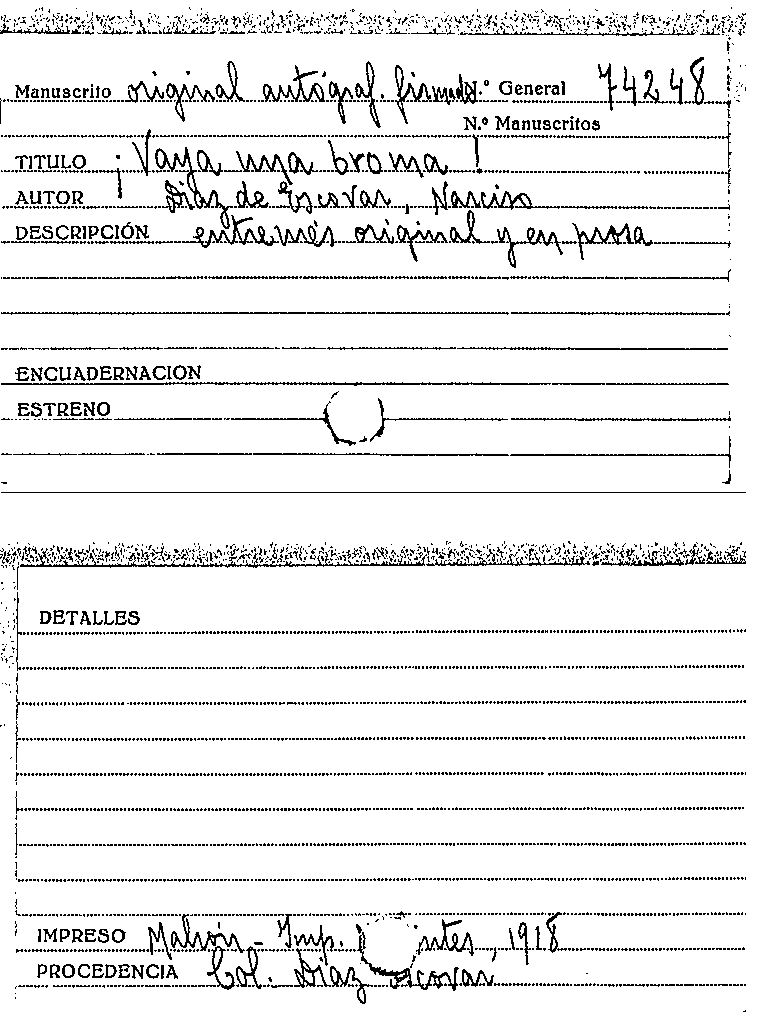 Manuscrito original autógraf. firmado N.º General 74248
N.º Manuscritos
TITULO ¡Vaya una broma!
AUTOR Díaz de Escovar, Narciso
DESCRIPCIÓN entremés original y en prosa
ENCUADERNACION
ESTRENO
DETALLES
IMPRESO Mahón - Imp. , 1918
PROCEDENCIA Col. Díaz scovar